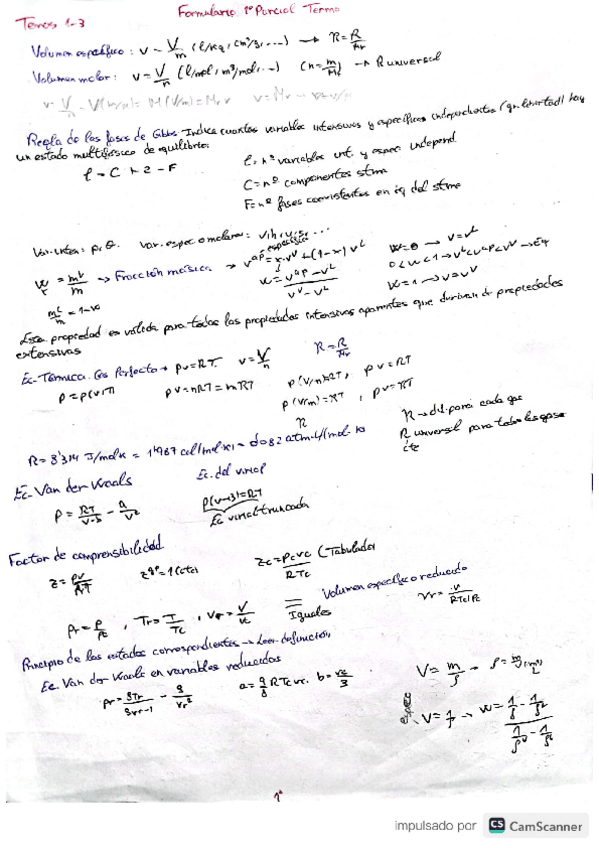 Formulario 1º Parcial Termo
Temas 1-3
Volumen específico: v = V/m (l/kg, cm³/g, ...) → R = R/Mr
Volumen molar: v = V/n (l/mol, m³/mol, ...) (n = m/Mr) → R universal
Regla de las fases de Gibbs. Indica cuantas variables intensivas y específicas independientes (gr. libertad) hay
un estado multifásico de equilibrio
l = C + 2 - F
l: nº variables int. y espec. independ.
C = nº componentes stma
F = nº fases coexistentes en eq del stma
Var. ints: p, θ. Var. espec o molares: v, h, u, s, ...
específico
x = mv/m → Fracción másica → vap = x·vv + (1-x) vL
w = (vap - vL)/(vv - vL)
w=0 → v=vL
0<w<1 → vL<vap<vv → Eq
w=1 → v=vv
mL/m = 1-w
Esta propiedad es válida para todas las propiedades intensivas aparentes que derivan de propiedades
extensivas
Ec. Térmica Gas Perfecto → pv=RT. v = V/n R = R/Mr
p = p(v,T) pv=nRT = mRT p(V/n)=RT, pv = RT
p(V/m) = RT, pv = RT
R → dif. para cada gas
R universal para todos los gases
cte
R = 8'314 J/molK = 1'987 cal/molK = 0'082 atm·l/(mol·K)
Ec. Van der Waals Ec. del virial
p = RT/(v-b) - a/v² p(v-B)=RT
Ec virial truncada
Factor de comprensibilidad
z = pv/RT zgp = 1 (cte) zc = pcvc/RTc (Tabulada)
Volumen específico reducido
pr = p/pc, Tr = T/Tc, vr = v/vc
Iguales
vr = v/(RTc/pc)
Principio de los estados correspondientes → Leer definición
Ec. Van der Waals en variables reducidas
pr = 8Tr/(3vr-1) - 3/vr² a = 9/8 RTcvc. b = vc/3
V = m/ρ
v = 1/ρ → w = (1/ρ - 1/ρL)/(1/ρv - 1/ρL)
1ª
impulsado por CS CamScanner